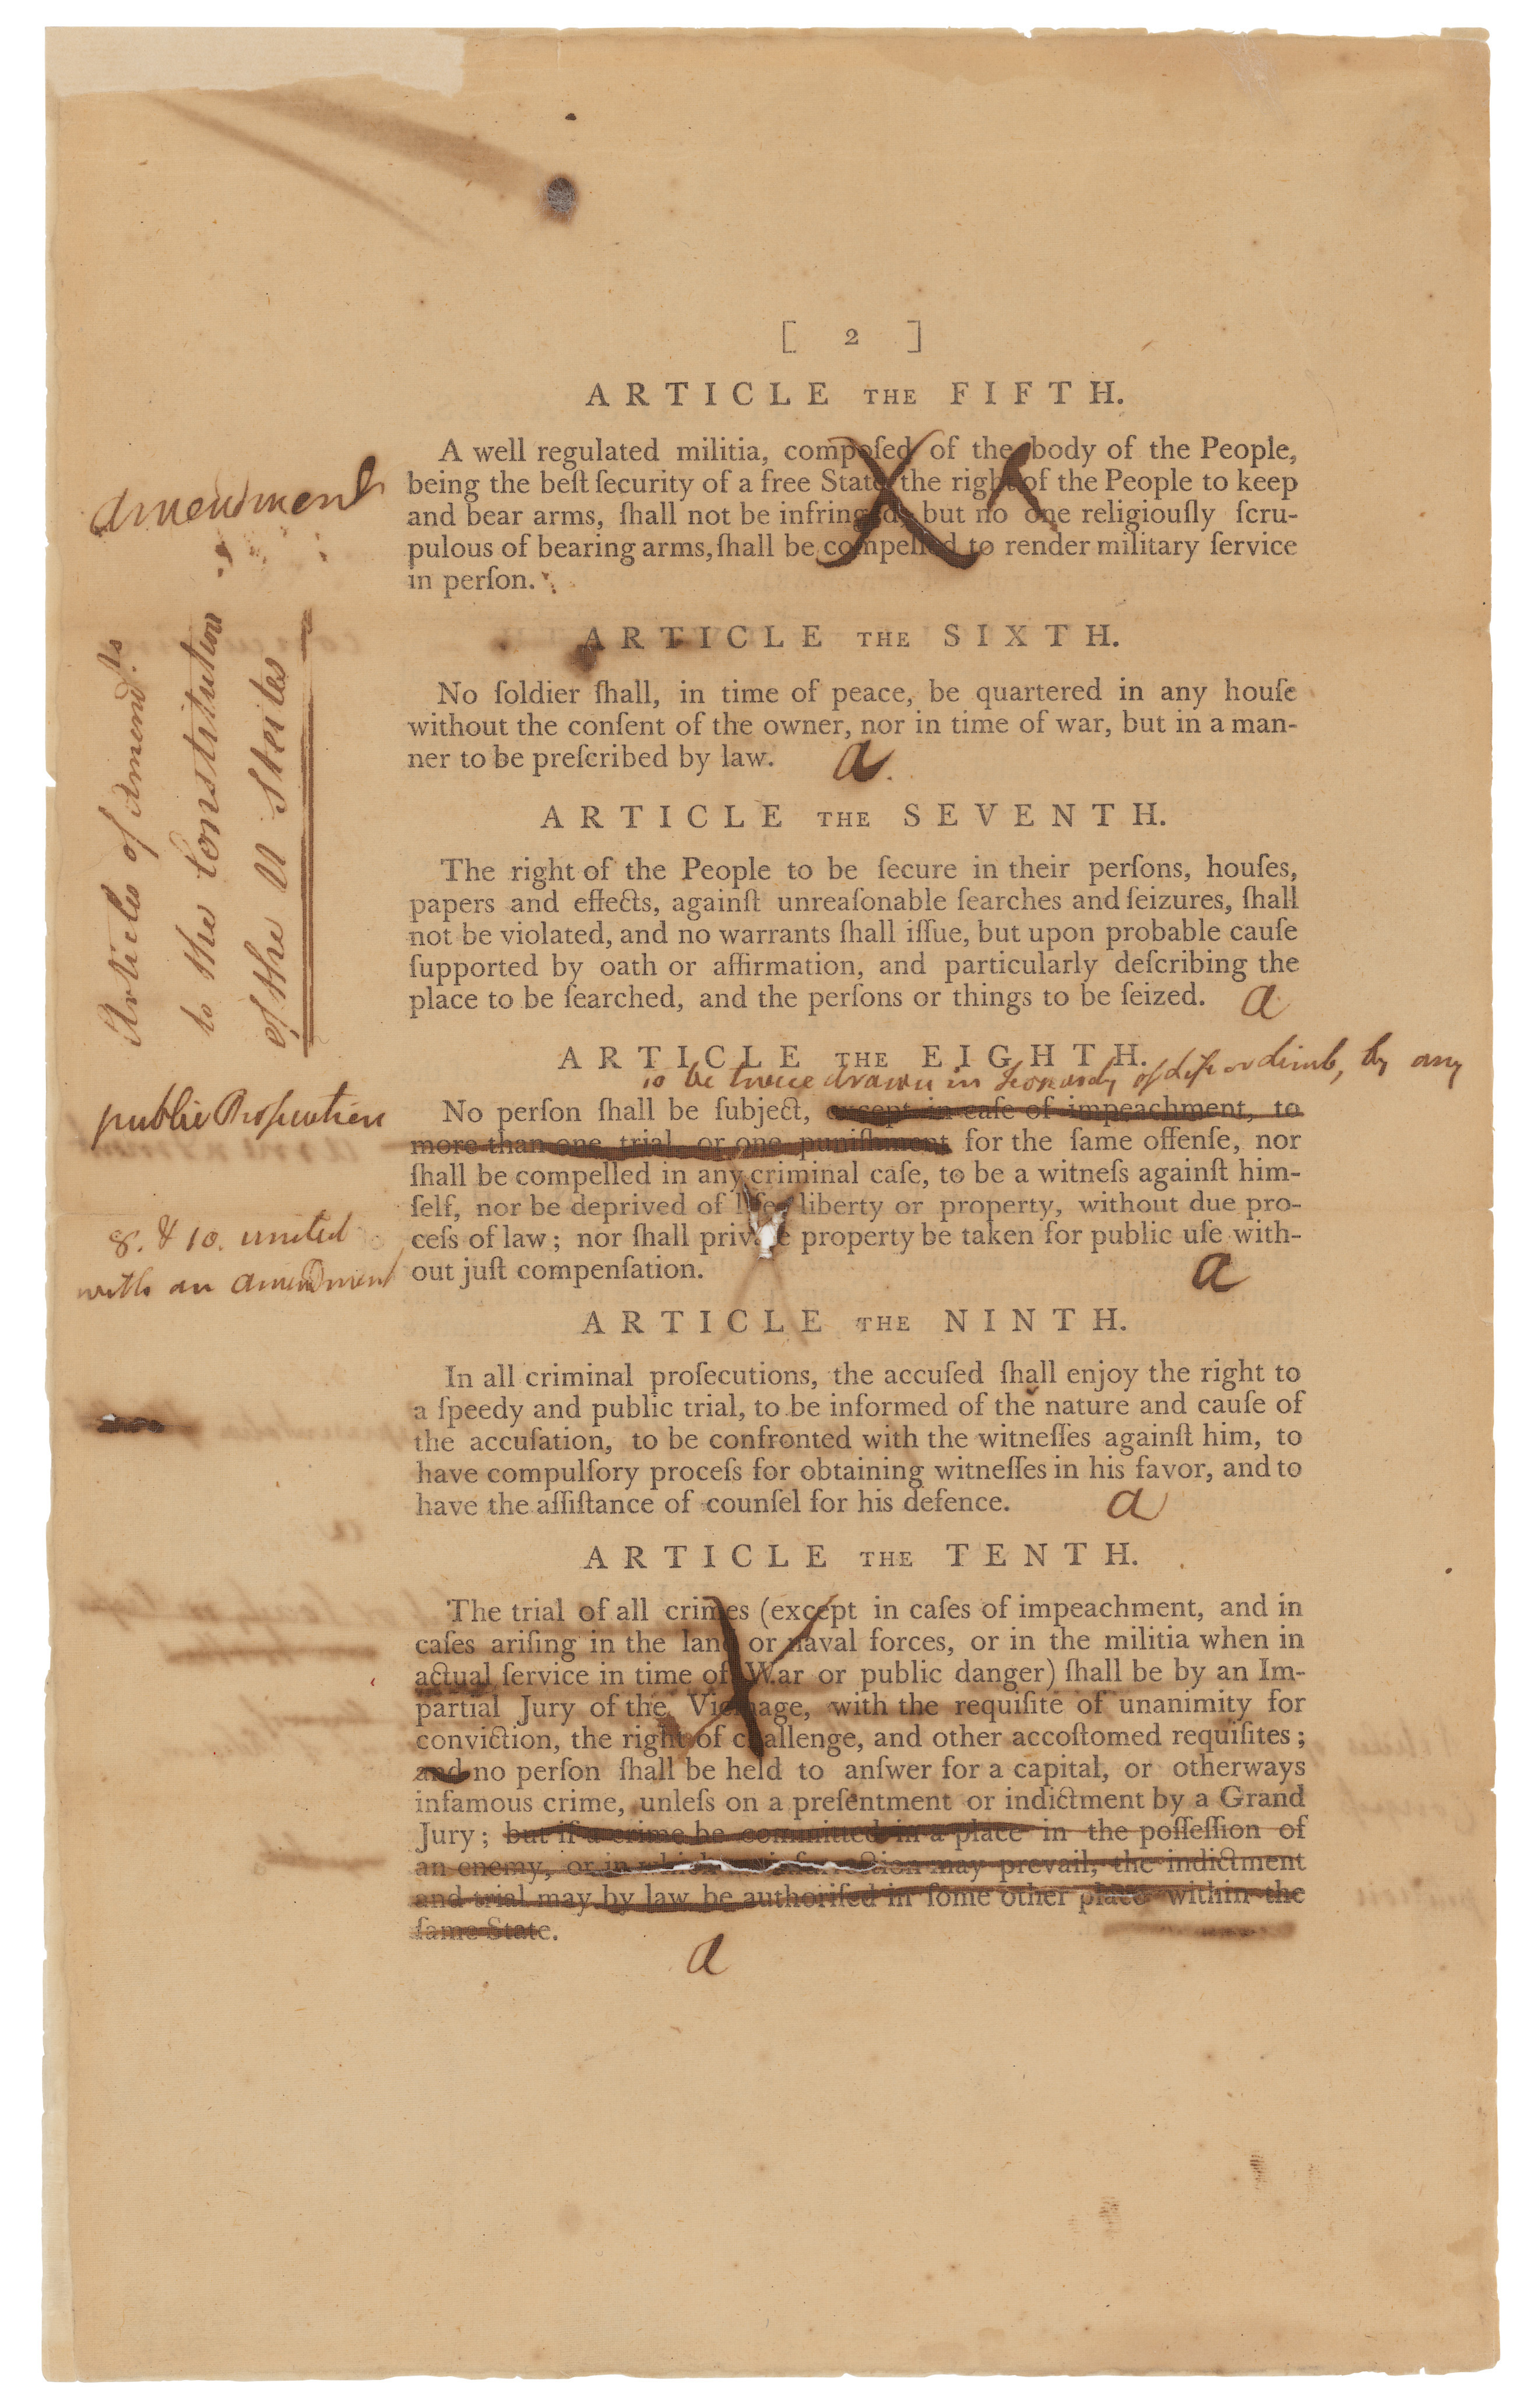 [ 2 ]
ARTICLE THE FIFTH.
A well regulated militia, compoſed of the body of the People,
being the beſt ſecurity of a free State, the right of the People to keep
and bear arms, ſhall not be infringed, but no one religiouſly ſcru-
pulous of bearing arms, ſhall be compelled to render military ſervice
in perſon.
amendment
ARTICLE THE SIXTH.
No ſoldier ſhall, in time of peace, be quartered in any houſe
without the conſent of the owner, nor in time of war, but in a man-
ner to be preſcribed by law. a
Articles of Amend.ts
to the Constitution
of the U States
ARTICLE THE SEVENTH.
The right of the People to be ſecure in their perſons, houſes,
papers and effects, againſt unreaſonable ſearches and ſeizures, ſhall
not be violated, and no warrants ſhall iſſue, but upon probable cauſe
ſupported by oath or affirmation, and particularly deſcribing the
place to be ſearched, and the perſons or things to be ſeized. a
ARTICLE THE EIGHTH.
to be twice drawn in Jeopardy of life or limb, by any
public Prosecution
No perſon ſhall be ſubject, except in caſe of impeachment, to
more than one trial or one puniſhment for the ſame offenſe, nor
ſhall be compelled in any criminal caſe, to be a witneſs againſt him-
ſelf, nor be deprived of life, liberty or property, without due pro-
ceſs of law; nor ſhall private property be taken for public uſe with-
out juſt compenſation. a
8. & 10. united
with an amendment
ARTICLE THE NINTH.
In all criminal proſecutions, the accuſed ſhall enjoy the right to
a ſpeedy and public trial, to be informed of the nature and cauſe of
the accuſation, to be confronted with the witneſſes againſt him, to
have compulſory proceſs for obtaining witneſſes in his favor, and to
have the aſſiſtance of counſel for his defence. a
ARTICLE THE TENTH.
The trial of all crimes (except in caſes of impeachment, and in
caſes ariſing in the land or naval forces, or in the militia when in
actual ſervice in time of War or public danger) ſhall be by an Im-
partial Jury of the Vicinage, with the requiſite of unanimity for
conviction, the right of challenge, and other accoſtomed requiſites;
and no perſon ſhall be held to anſwer for a capital, or otherways
infamous crime, unleſs on a preſentment or indictment by a Grand
Jury; but if a crime be committed in a place in the poſſeſſion of
an enemy, or in which an inſurrection may prevail, the indictment
and trial may by law be authoriſed in ſome other place within the
ſame State.
a